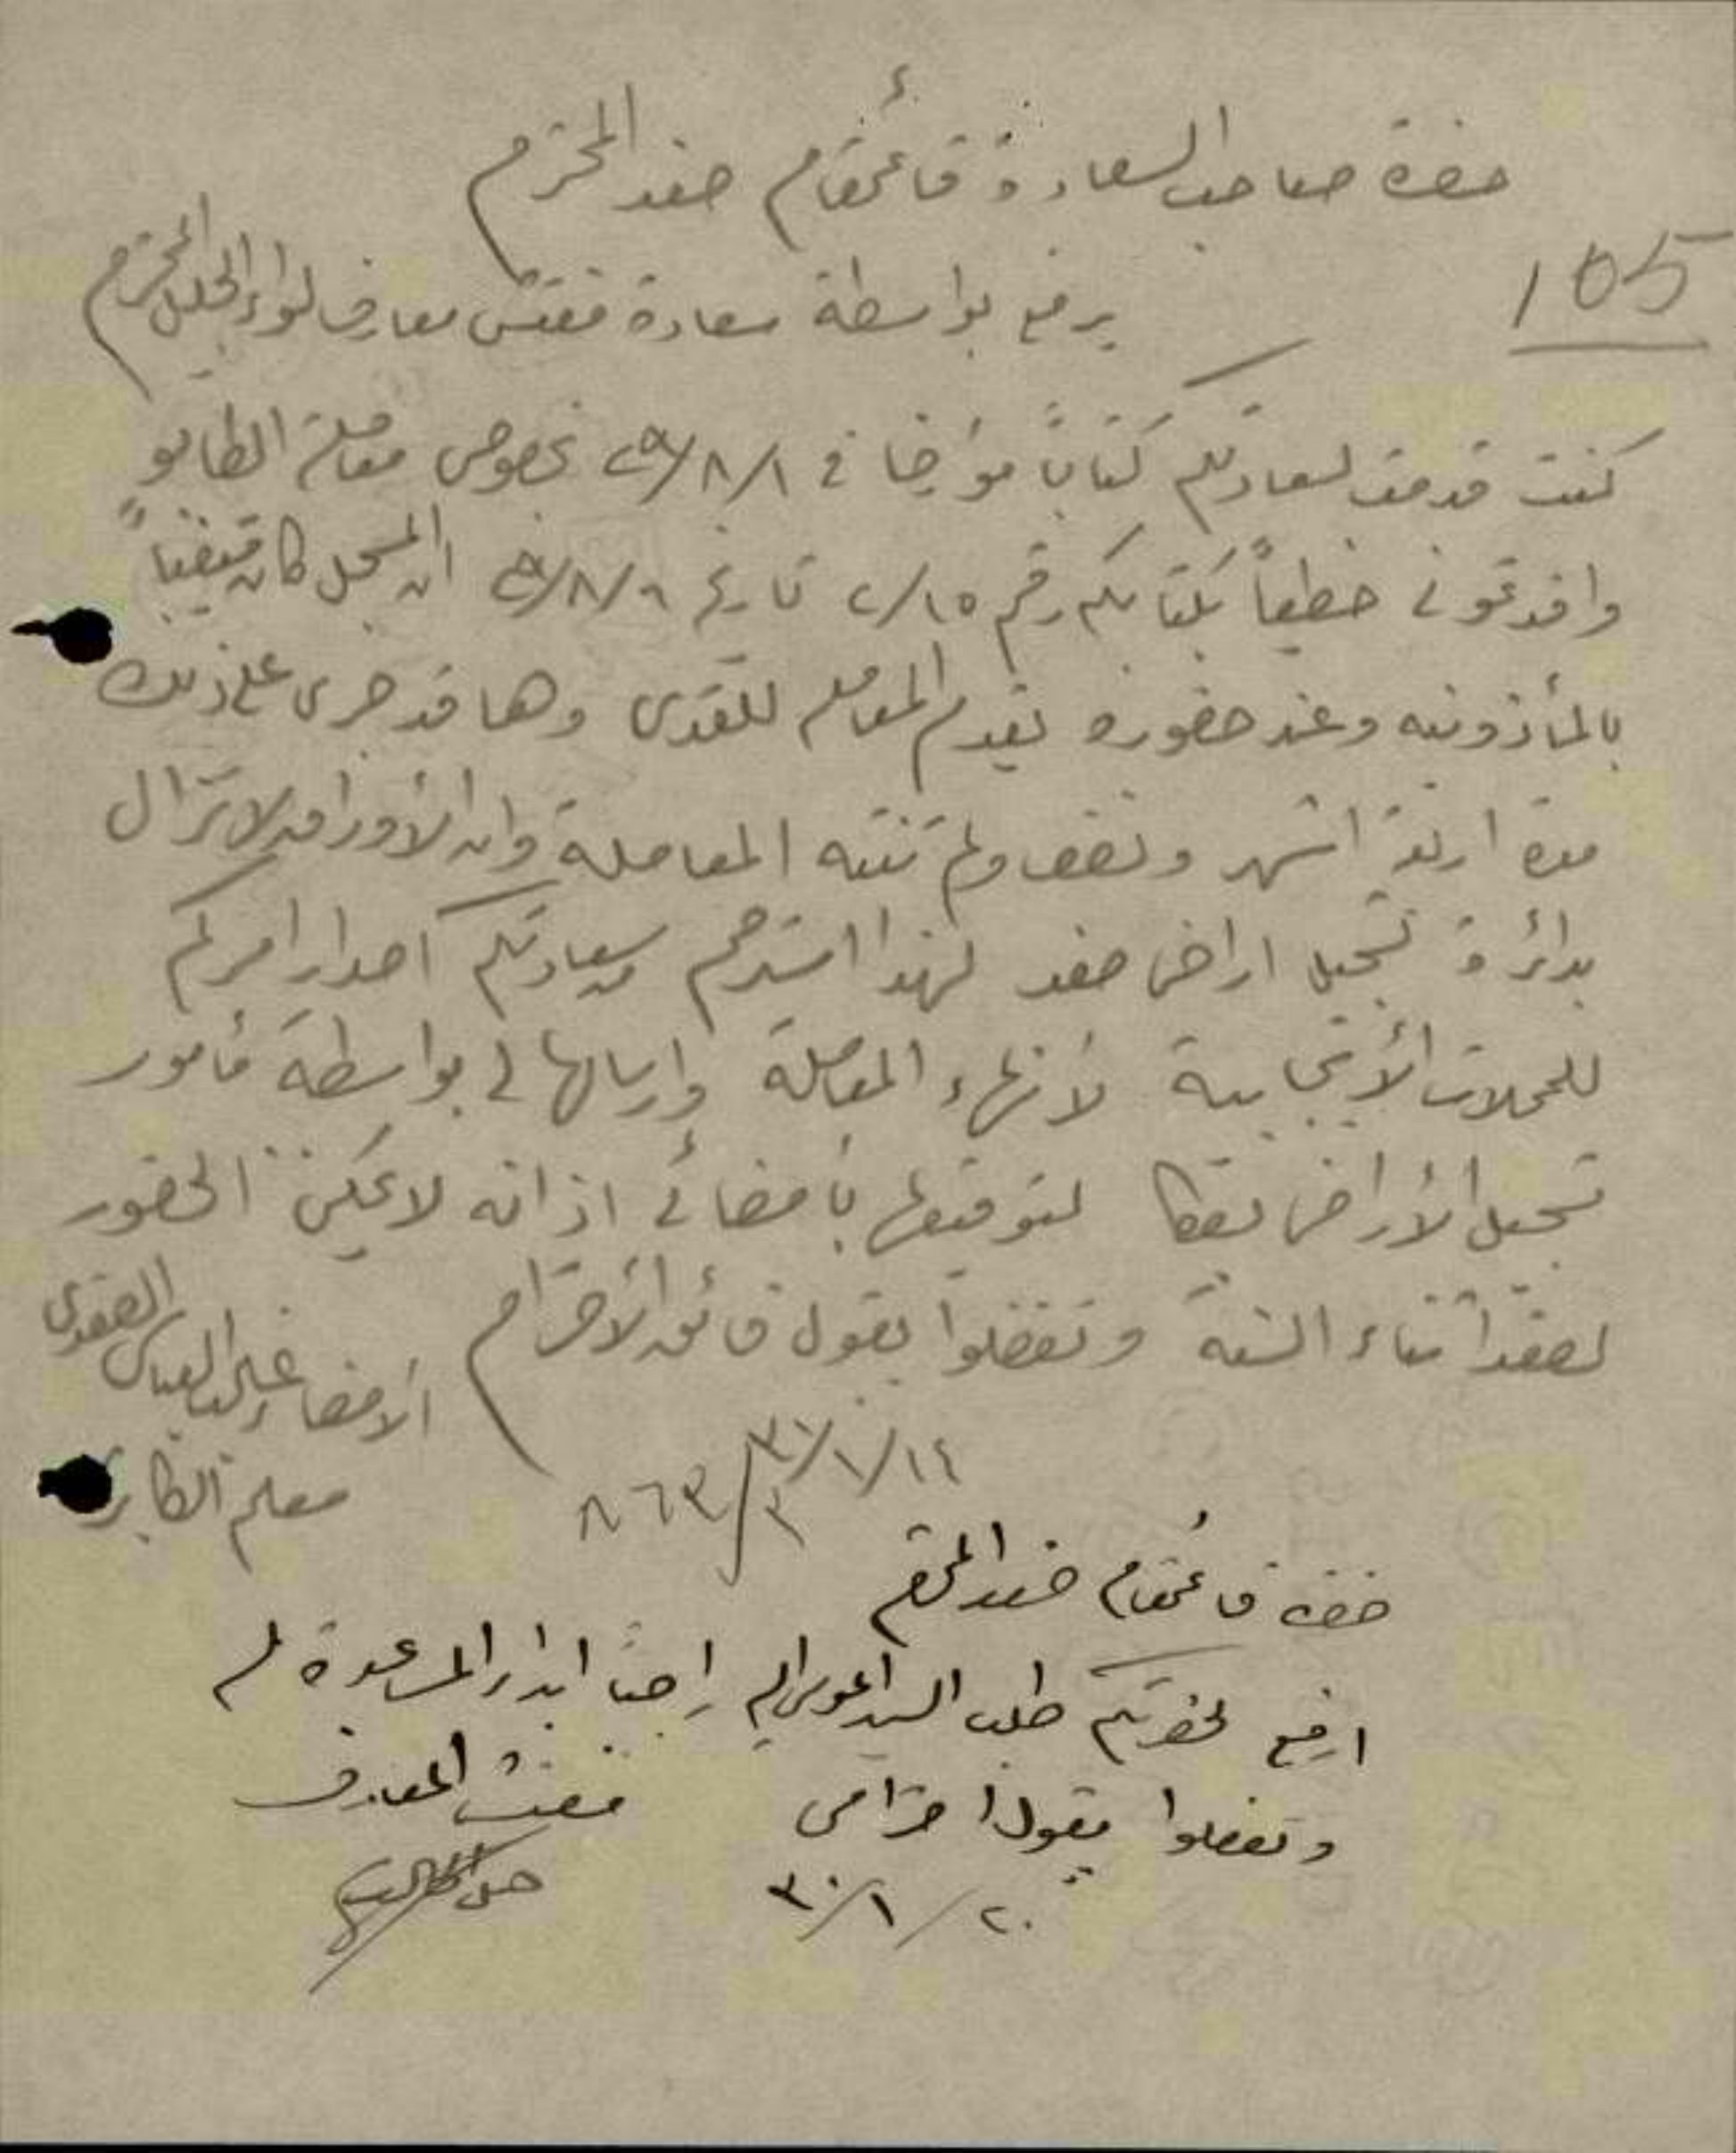 حضرة صاحب السعادة قائمقام صفد المحترم
105
يرفع بواسطة سعادة مفتش معارف لواء الجليل المحترم
كنت قدمت لسعادتكم كتاباً مؤرخا في ٢٩/٨/١ بخصوص معاملة الطابو
وافدتموني خطياً بكتابكم رقم ٢/١٥ تاريخ ٢٩/٨/٦ ان المسجل كان متغيباً
بالمأذونيه وعند حضوره تقدم المعامله وها قد جرى على ذلك
مدة اربعة اشهر ونصف ولم تنته المعاملة وان الأوراق لا تزال
بدائرة تسجيل اراضي صفد لهذا استرحم من سعادتكم اصدار امركم
للمحلات الأيجابية لأنهاء المعاملة وارسالها لي بواسطة مأمور
تسجيل الأراضي بعكا لتوقيعها بأمضائي اذ انه لا يمكن الحضور
لصفد اثناء السنة وتفضلوا بقبول فائق الأحترام
الأمضاء الصفدي
معلم الكابري
١٤/١/٣٠
٨٦٣/٣
حضرة قائمقام صفد المحترم
ارفع لحضرتكم طلب السيد المومى اليه راجياً ابداء المساعدة له
وتفضلوا بقبول احترامي
مفتش المعارف
٢٠/١/٣٠